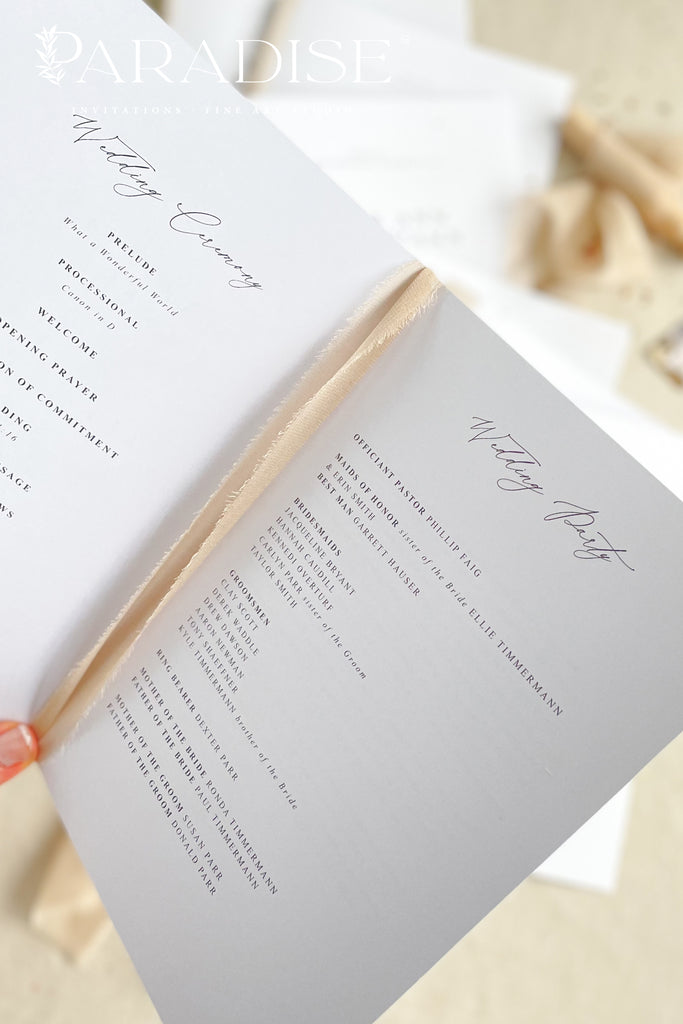 PARADISE
INVITATIONS · FINE ART STUDIO
Wedding Ceremony
PRELUDE
What a Wonderful World
PROCESSIONAL
Canon in D
WELCOME
OPENING PRAYER
ON OF COMMITMENT
DING
:16
SSAGE
WS
Wedding Party
OFFICIANT PASTOR PHILLIP FAIG
MAIDS OF HONOR sister of the Bride ELLIE TIMMERMANN
& ERIN SMITH
BEST MAN GARRETT HAUSER
BRIDESMAIDS
JACQUELINE BRYANT
HANNAH CAUDILL
KENNEDI OVERTURF
CARLYN PARR sister of the Groom
TAYLOR SMITH
GROOMSMEN
CLAY SCOTT
DEREK WADDLE
DREW DAWSON
AARON NEWMAN
TONY SHAEFFNER
KYLE TIMMERMANN brother of the Bride
RING BEARER DEXTER PARR
MOTHER OF THE BRIDE RONDA TIMMERMANN
FATHER OF THE BRIDE PAUL TIMMERMANN
MOTHER OF THE GROOM SUSAN PARR
FATHER OF THE GROOM DONALD PARR